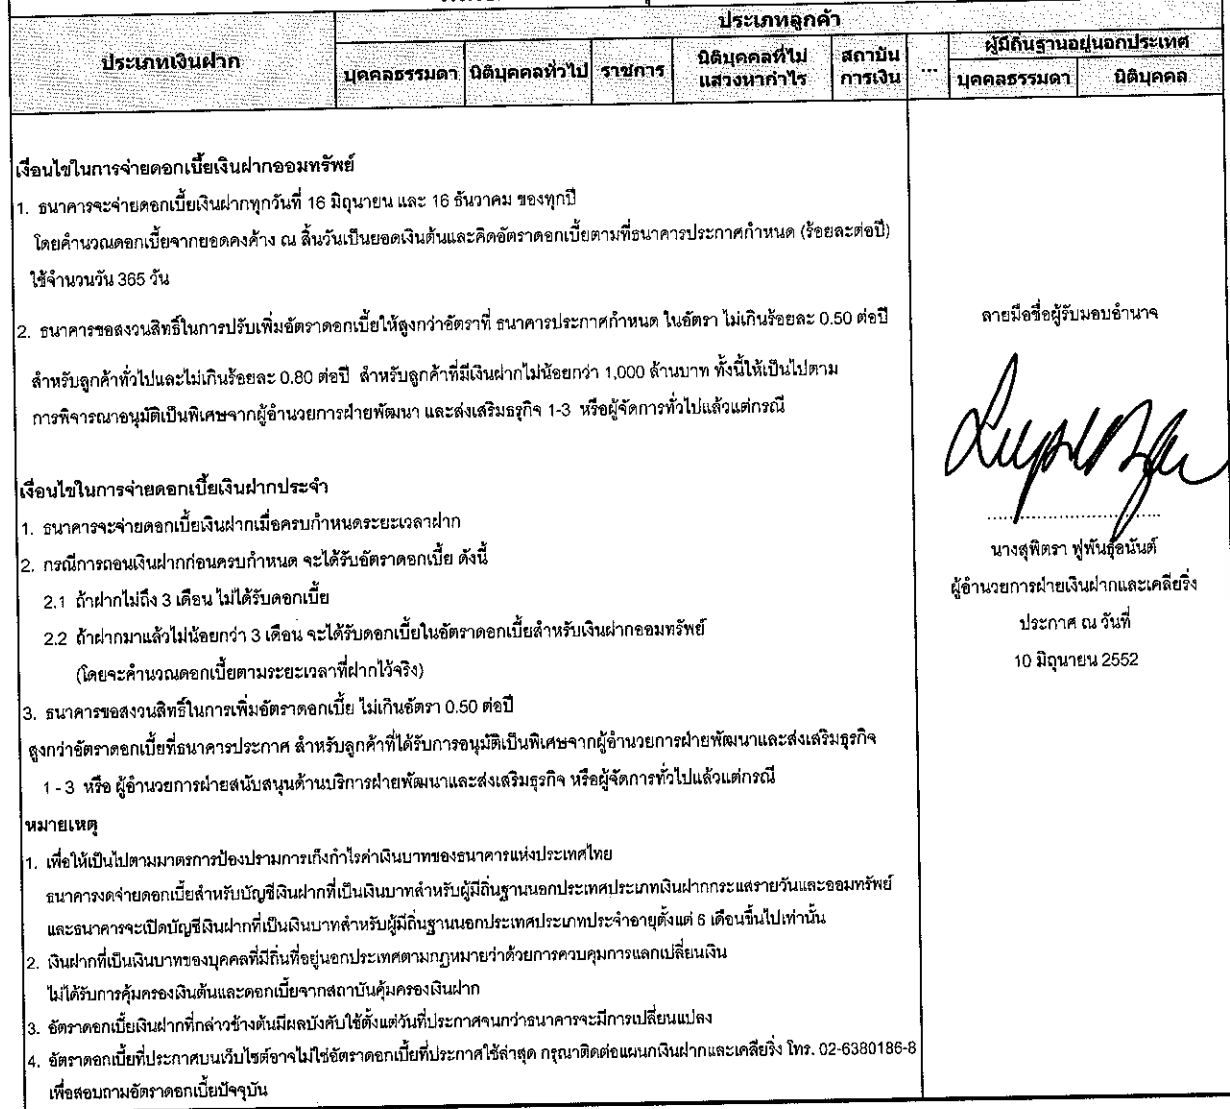 ประเภทเงินฝาก
ประเภทลูกค้า
บุคคลธรรมดา
นิติบุคคลทั่วไป
ราชการ
นิติบุคคลที่ไม่
แสวงหากำไร
สถาบัน
การเงิน
...
ผู้มีถิ่นฐานอยู่นอกประเทศ
บุคคลธรรมดา
นิติบุคคล
เงื่อนไขในการจ่ายดอกเบี้ยเงินฝากออมทรัพย์
1. ธนาคารจะจ่ายดอกเบี้ยเงินฝากทุกวันที่ 16 มิถุนายน และ 16 ธันวาคม ของทุกปี
โดยคำนวณดอกเบี้ยจากยอดคงค้าง ณ สิ้นวันเป็นยอดเงินต้นและคิดอัตราดอกเบี้ยตามที่ธนาคารประกาศกำหนด (ร้อยละต่อปี)
ใช้จำนวนวัน 365 วัน
2. ธนาคารขอสงวนสิทธิ์ในการปรับเพิ่มอัตราดอกเบี้ยให้สูงกว่าอัตราที่ ธนาคารประกาศกำหนด ในอัตรา ไม่เกินร้อยละ 0.50 ต่อปี
สำหรับลูกค้าทั่วไปและไม่เกินร้อยละ 0.80 ต่อปี สำหรับลูกค้าที่มีเงินฝากไม่น้อยกว่า 1,000 ล้านบาท ทั้งนี้ให้เป็นไปตาม
การพิจารณาอนุมัติเป็นพิเศษจากผู้อำนวยการฝ่ายพัฒนา และส่งเสริมธรุกิจ 1-3 หรือผู้จัดการทั่วไปแล้วแต่กรณี
เงื่อนไขในการจ่ายดอกเบี้ยเงินฝากประจำ
1. ธนาคารจะจ่ายดอกเบี้ยเงินฝากเมื่อครบกำหนดระยะเวลาฝาก
2. กรณีการถอนเงินฝากก่อนครบกำหนด จะได้รับอัตราดอกเบี้ย ดังนี้
2.1 ถ้าฝากไม่ถึง 3 เดือน ไม่ได้รับดอกเบี้ย
2.2 ถ้าฝากมาแล้วไม่น้อยกว่า 3 เดือน จะได้รับดอกเบี้ยในอัตราดอกเบี้ยสำหรับเงินฝากออมทรัพย์
(โดยจะคำนวณดอกเบี้ยตามระยะเวลาที่ฝากไว้จริง)
3. ธนาคารขอสงวนสิทธิ์ในการเพิ่มอัตราดอกเบี้ย ไม่เกินอัตรา 0.50 ต่อปี
สูงกว่าอัตราดอกเบี้ยที่ธนาคารประกาศ สำหรับลูกค้าที่ได้รับการอนุมัติเป็นพิเศษจากผู้อำนวยการฝ่ายพัฒนาและส่งเสริมธุรกิจ
1 - 3 หรือ ผู้อำนวยการฝ่ายสนับสนุนด้านบริการฝ่ายพัฒนาและส่งเสริมธุรกิจ หรือผู้จัดการทั่วไปแล้วแต่กรณี
หมายเหตุ
1. เพื่อให้เป็นไปตามมาตรการป้องปรามการเก็งกำไรค่าเงินบาทของธนาคารแห่งประเทศไทย
ธนาคารงดจ่ายดอกเบี้ยสำหรับบัญชีเงินฝากที่เป็นเงินบาทสำหรับผู้มีถิ่นฐานนอกประเทศประเภทเงินฝากกระแสรายวันและออมทรัพย์
และธนาคารจะเปิดบัญชีเงินฝากที่เป็นเงินบาทสำหรับผู้มีถิ่นฐานนอกประเทศประเภทประจำอายุตั้งแต่ 6 เดือนขึ้นไปเท่านั้น
2. เงินฝากที่เป็นเงินบาทของบุคคลที่มีถิ่นที่อยู่นอกประเทศตามกฎหมายว่าด้วยการควบคุมการแลกเปลี่ยนเงิน
ไม่ได้รับการคุ้มครองเงินต้นและดอกเบี้ยจากสถาบันคุ้มครองเงินฝาก
3. อัตราดอกเบี้ยเงินฝากที่กล่าวข้างต้นมีผลบังคับใช้ตั้งแต่วันที่ประกาศจนกว่าธนาคารจะมีการเปลี่ยนแปลง
4. อัตราดอกเบี้ยที่ประกาศบนเว็บไซต์อาจไม่ใช่อัตราดอกเบี้ยที่ประกาศใช้ล่าสุด กรุณาติดต่อแผนกเงินฝากและเคลียริ่ง โทร. 02-6380186-8
เพื่อสอบถามอัตราดอกเบี้ยปัจจุบัน
ลายมือชื่อผู้รับมอบอำนาจ
นางสุพิตรา ฟูพันธุ์อนันต์
ผู้อำนวยการฝ่ายเงินฝากและเคลียริ่ง
ประกาศ ณ วันที่
10 มิถุนายน 2552